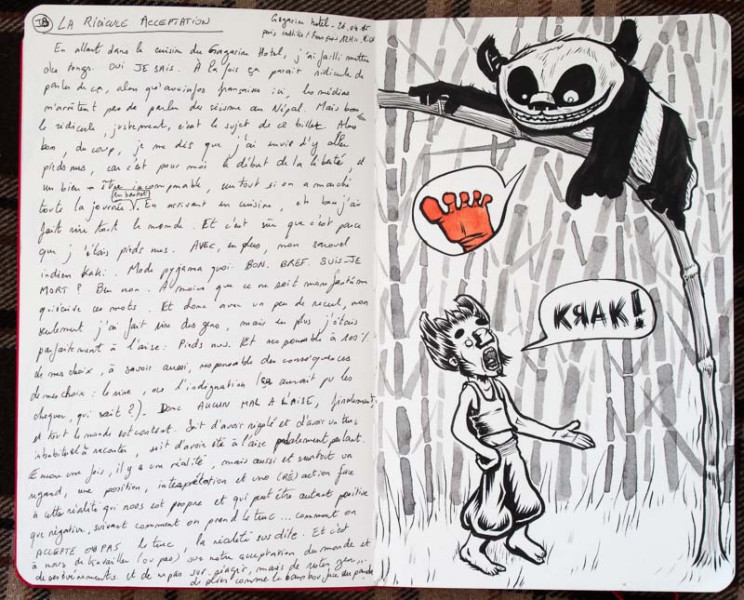 LA RIDICULE ACCEPTATION
Gagarine hotel - 26.04.15
En allant dans la cuisine du Gagarine Hotel, j'ai failli mettre
des tongs. OUI JE SAIS. À la fois ça parait ridicule de
parler de ça, alors qu'aux infos françaises ici, les médias
n'arrêtent pas de parler du séisme au Népal. Mais bon
le ridicule, justement, c'est le sujet de ce billet. Alors
bon, du coup, je me dis que j'ai envie d'y aller
pieds nus, car c'est pour moi le début de la liberté et
un bien-être incomparable, surtout si on a marché
toute la journée en baskets. En arrivant en cuisine, et ben j'ai
fait rire tout le monde. Et c'est sûr que c'est parce
que j'étais pieds nus. AVEC, en plus, mon sarouel
indien kaki. Mode pyjama quoi. BON. BREF. SUIS-JE
MORT ? Ben non. À moins que ce ne soit mon fantôme
qui écrive ces mots. Et donc avec un peu de recul, non
seulement j'ai fait rire des gens, mais en plus j'étais
parfaitement à l'aise : Pieds nus. Et responsable à 100%
de mes choix, à savoir aussi, responsable des conséquences
de mes choix : le rire, ou l'indignation (ça aurait pu les
choquer, qui sait ?). Donc AUCUN MAL A L'AISE, finalement,
et tout le monde est content. Soit d'avoir rigolé et d'avoir un truc
inhabituel à raconter, soit d'avoir été à l'aise parlant.
Encore une fois, il y a une réalité, mais aussi et surtout un
regard, une position, interprétation et une (RÉ)action face
à cette réalité qui nous est propre et qui peut être autant positive
que négative, suivant comment on prend le truc... comment on
ACCEPTE OU PAS le truc, la réalité sus dite. Et c'est
à nous de travailler (ou pas) sur notre acceptation du monde et
des événements et de ne pas sur-réagir, mais de rester zen...
de plier comme le bambou face au panda
KRAK!